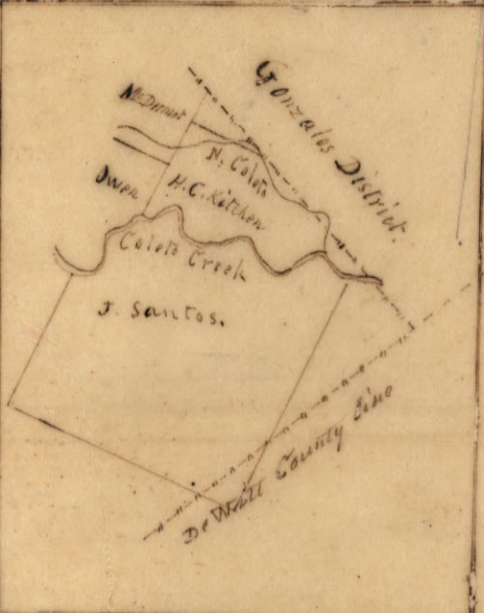 Gonzales District.
McDermot
N. Coleto
Owen
H. C. Kitchen
Coleto Creek
J. Santos.
De Witt County Line